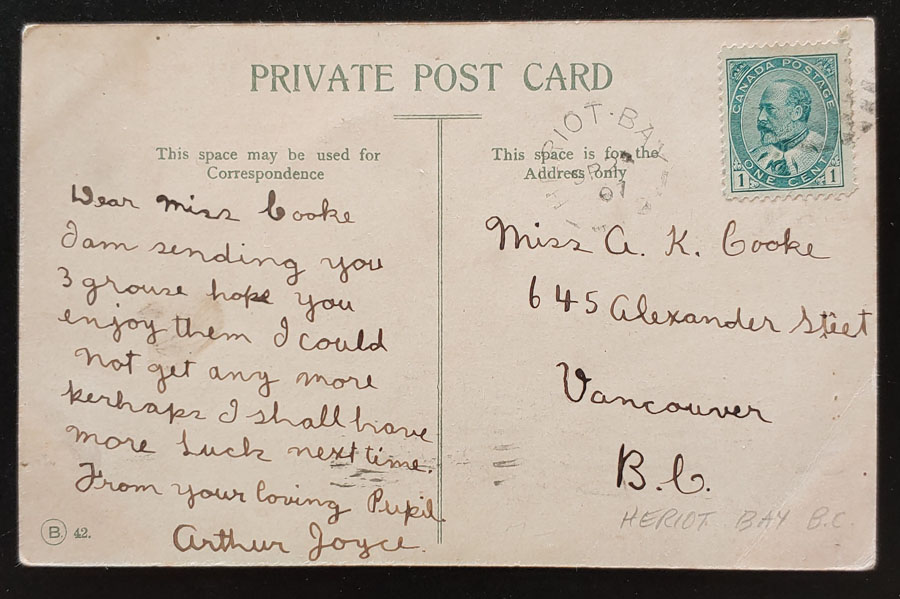 PRIVATE POST CARD
This space may be used for
Correspondence
Dear Miss Cooke
I am sending you
3 grouse hope you
enjoy them I could
not get any more
perhaps I shall have
more Luck next time.
From your loving Pupil
Arthur Joyce.
B. 42.
This space is for the
Address only
RIOT·BAY
SP
07
CANADA POSTAGE
1 ONE CENT 1
Miss A. K. Cooke
645 Alexander Steet
Vancouver
B.C.
HERIOT BAY B.C.